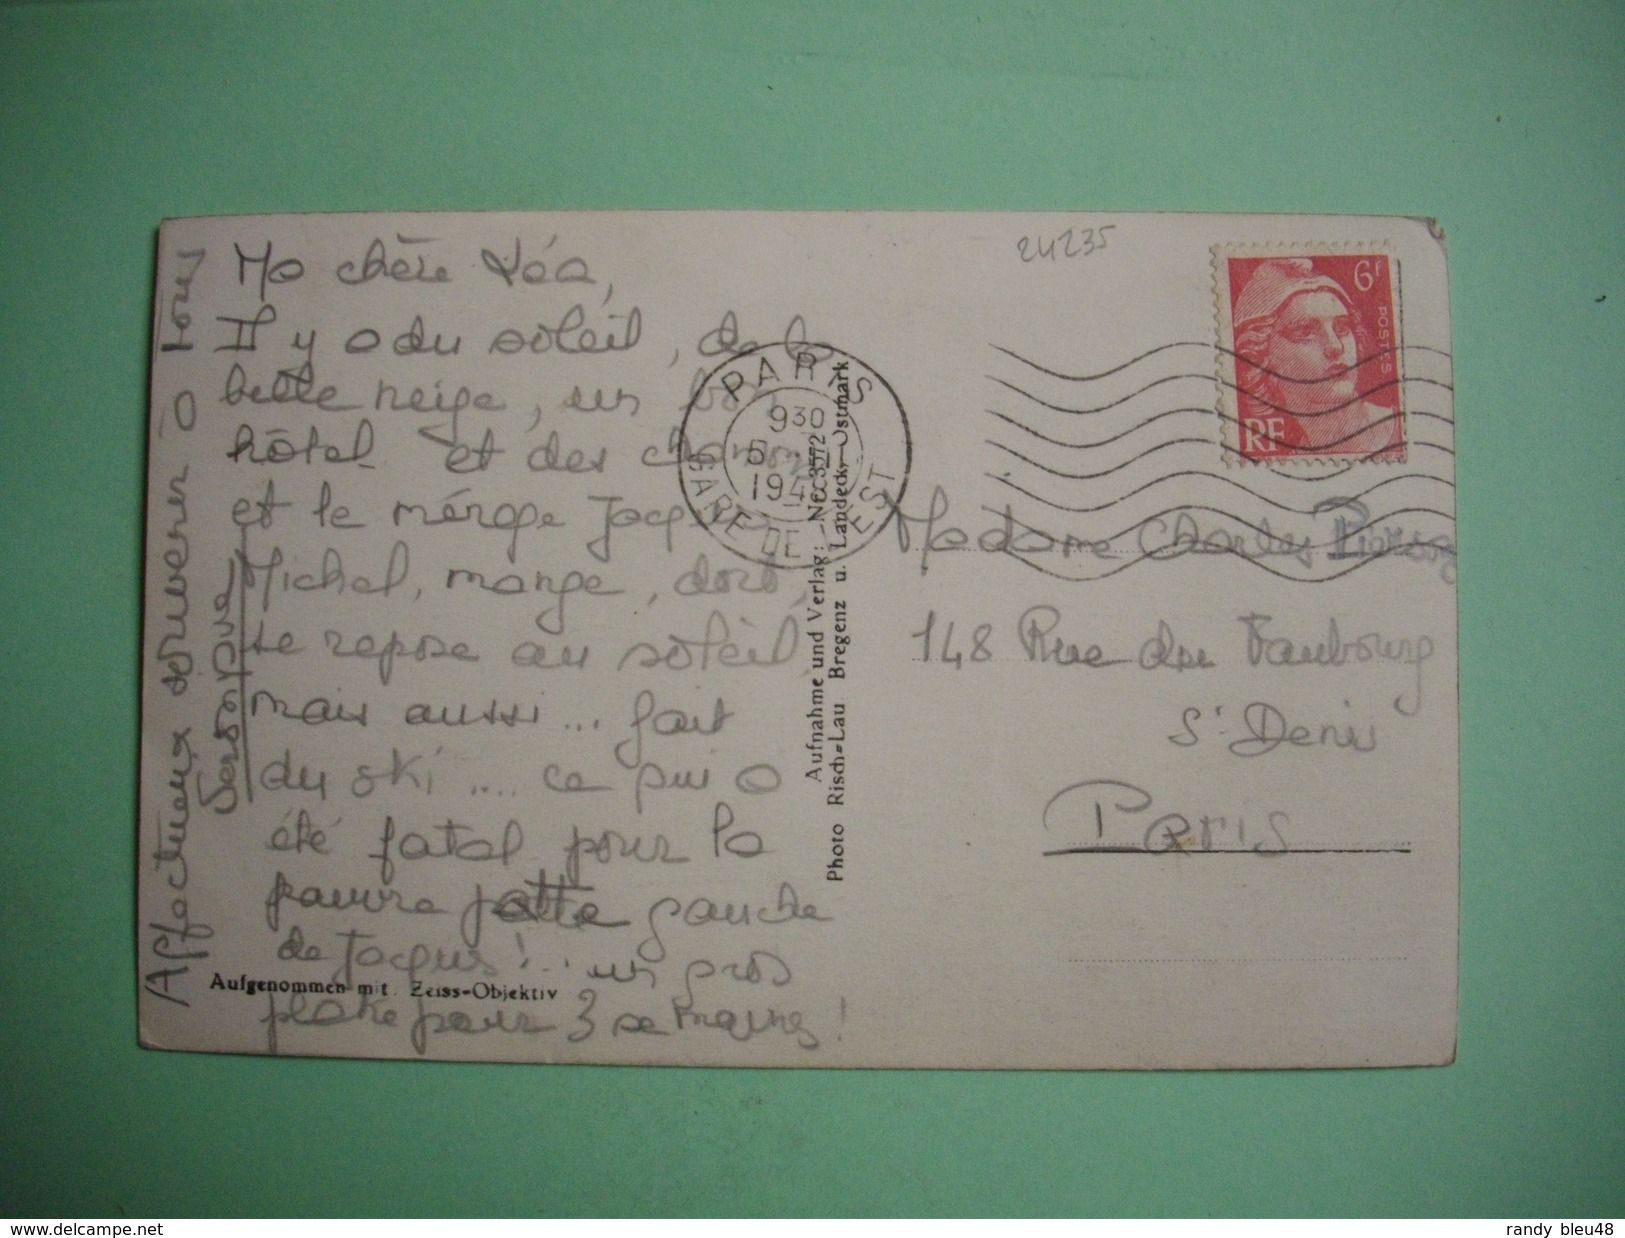 24235
Ma chère Léa,
Il y a du soleil, de la
belle neige, un bon
hôtel et des
et le ménage Jacques
Michel, mange, dort,
se repose au soleil
mais aussi... fait
du ski .... ce qui a
été fatal pour la
pauvre patte gauche
de Jacques! .. un gros
platre pour 3 semaines!
Affectueux souvenir à tous
6f
POSTES
RF
PARIS
9 30
194
GARE DE L'EST
Aufnahme und Verlag: Nr. 3572
Photo Risch-Lau Bregenz u. Landeck, Ostmark
Aufgenommen mit Zeiss-Objektiv
Madame Charles
148 Rue du Faubourg
St Denis
Paris
randy bleu48
www.delcampe.net